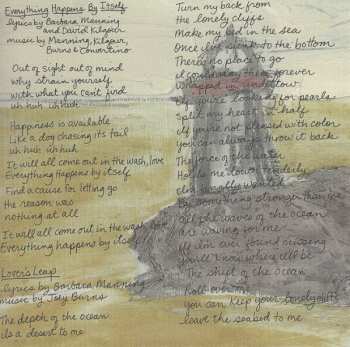 Everything Happens By Itself
lyrics by Barbara Manning
and David Kilgour
music by Manning, Kilgour,
Burns & Convertino
Out of sight out of mind
Why strain yourself
with what you can't find
uh huh uh huh
Happiness is available
Like a dog chasing its tail
uh huh uh huh
It will all come out in the wash, love
Everything happens by itself
Find a cause for letting go
the reason was
nothing at all
It will all come out in the wash, love
Everything happens by itself
Lovers Leap
lyrics by Barbara Manning
music by Joey Burns
The depth of the ocean
is a desert to me
Turn my back from
the lonely cliffs
Make my bed in the sea
Once I've sunk to the bottom
There's no place to go
I could stay there forever
Wrapped in undertow
If you're looking for pearls
Split my heart in half
If you're not pleased with color
you can always throw it back
The force of the water
Holds me down tenderly
something stronger than me
All the waves of the ocean
are waving for me
If I'm ever found missing
You'll know where I'll be
The shelf of the ocean
Roll over me
you can keep your lonely cliffs
leave the seabed to me